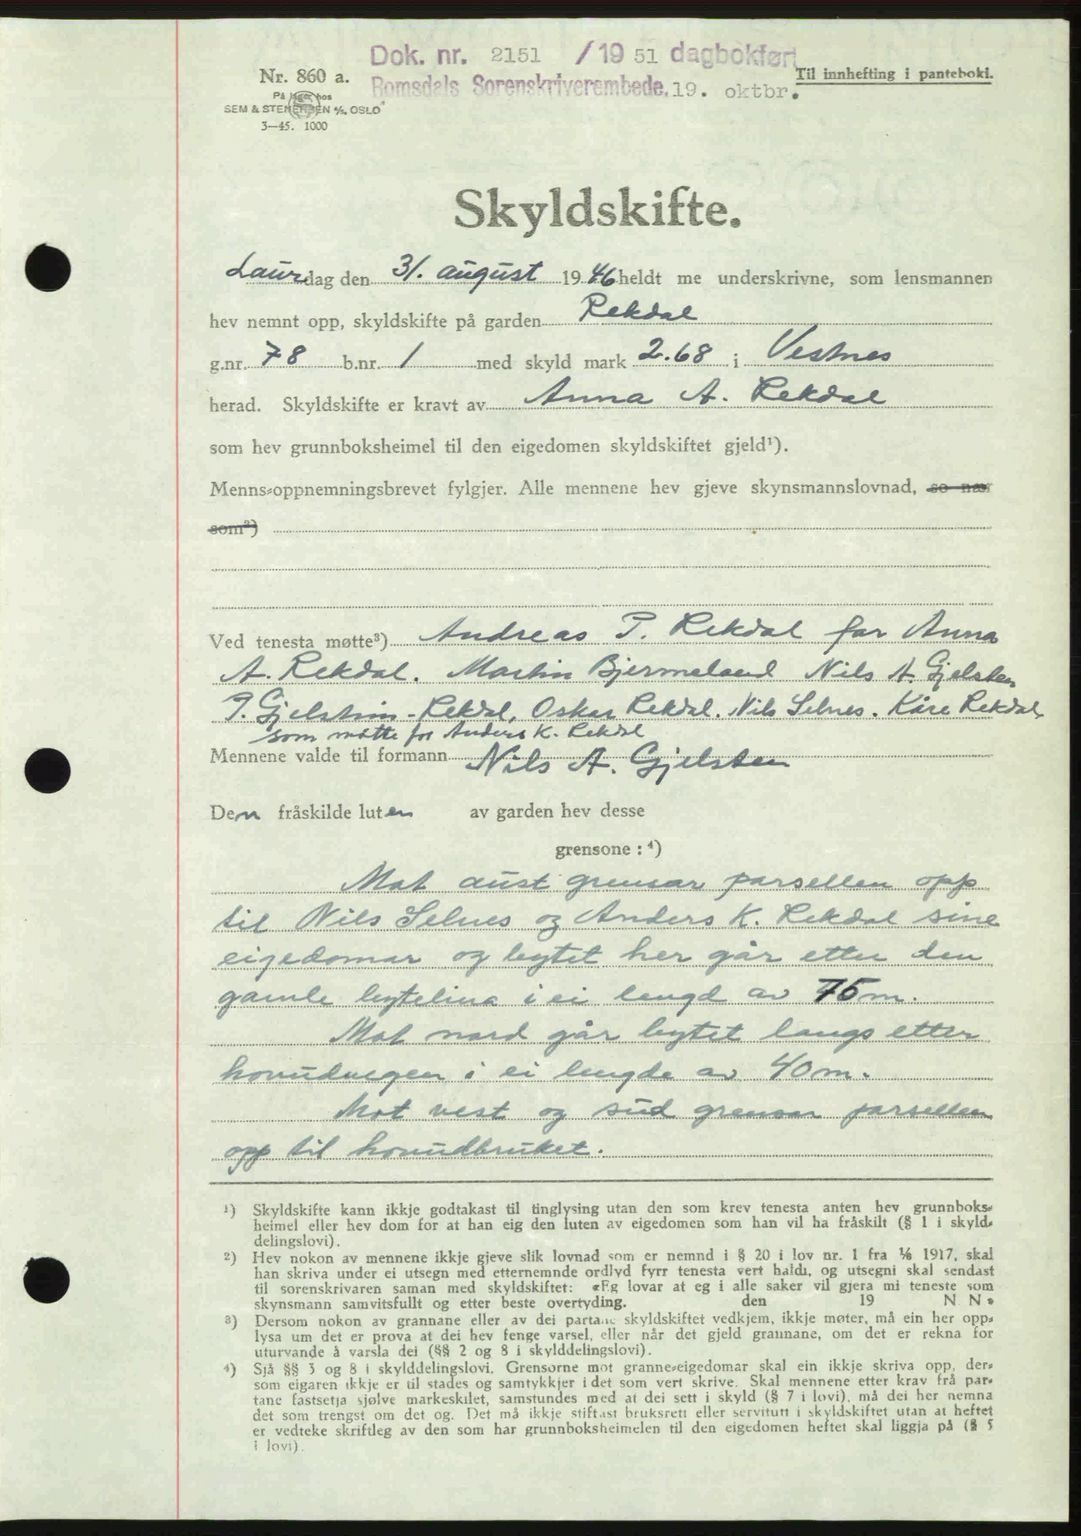 Dok. nr. 2151 / 19 51 dagbokført
Romsdals Sorenskriverembede. 19. oktbr.
Til innhefting i panteboki.
Nr. 860 a.
På lager hos
SEM & STENERSEN A/S. OSLO
3—45. 1000
Skyldskifte.
Laurdag den 31. august 1946 heldt me underskrivne, som lensmannen
hev nemnt opp, skyldskifte på garden Rekdal
g.nr. 78 b.nr. 1 med skyld mark 2.68 i Vestnes
herad. Skyldskifte er kravt av Anna A. Rekdal
som hev grunnboksheimel til den eigedomen skyldskiftet gjeld¹).
Menns-oppnemningsbrevet fylgjer. Alle mennene hev gjeve skynsmannslovnad, so nær
som²)
Ved tenesta møtte³) Andreas P. Rekdal for Anna
A. Rekdal. Martin Bjermeland Nils A. Gjelsten
P. Gjelstein-Rekdal, Oskar Rekdal. Nils Selnes. Kåre Rekdal
som møtte for Anders K. Rekdal
Mennene valde til formann Nils A. Gjelsten
Den fråskilde luten av garden hev desse
grensone : ⁴)
Mot aust grensar parsellen opp
til Nils Selnes og Anders K. Rekdal sine
eigedomar og bytet her går etter den
gamle bytelina i ei lengd av 75 m.
Mot nord går bytet langs etter
hovudvegen i ei lengde av 40 m.
Mot vest og sud grensar parsellen
opp til hovudbruket.
¹) Skyldskifte kann ikkje godtakast til tinglysing utan den som krev tenesta anten hev grunnboks-
heimel eller hev dom for at han eig den luten av eigedomen som han vil ha fråskilt (§ 1 i skyld-
delingslovi).
²) Hev nokon av mennene ikkje gjeve slik lovnad som er nemnd i § 20 i lov nr. 1 fra 1/6 1917, skal
han skriva under ei utsegn med etternemnde ordlyd fyrr tenesta vert haldi, og utsegni skal sendast
til sorenskrivaren saman med skyldskiftet: «Eg lovar at eg i alle saker vil gjera mi teneste som
skynsmann samvitsfullt og etter beste overtyding. den 19 N N»
³) Dersom nokon av grannane eller av dei partane skyldskiftet vedkjem, ikkje møter, må ein her opp-
lysa um det er prova at dei hev fenge varsel, eller når det gjeld grannane, om det er rekna for
uturvande å varsla dei (§§ 2 og 8 i skylddelingslovi).
⁴) Sjå §§ 3 og 8 i skylddelingslovi. Grensorne mot granne-eigedomar skal ein ikkje skriva opp, der-
som eigaren ikkje er til stades og samtykkjer i det som vert skrive. Skal mennene etter krav frå par-
tane fastsetja sjølve markeskilet, samstundes med at dei sett i skyld (§ 7 i lovi), må dei her nemna
det som trengst om det og. Det må ikkje stiftast bruksrett eller servitutt i skyldskiftet utan at heftet
er vedteke skriftleg av den som har grunnboksheimelen til den eigedomen heftet skal liggja på (§ 5
i lovi).